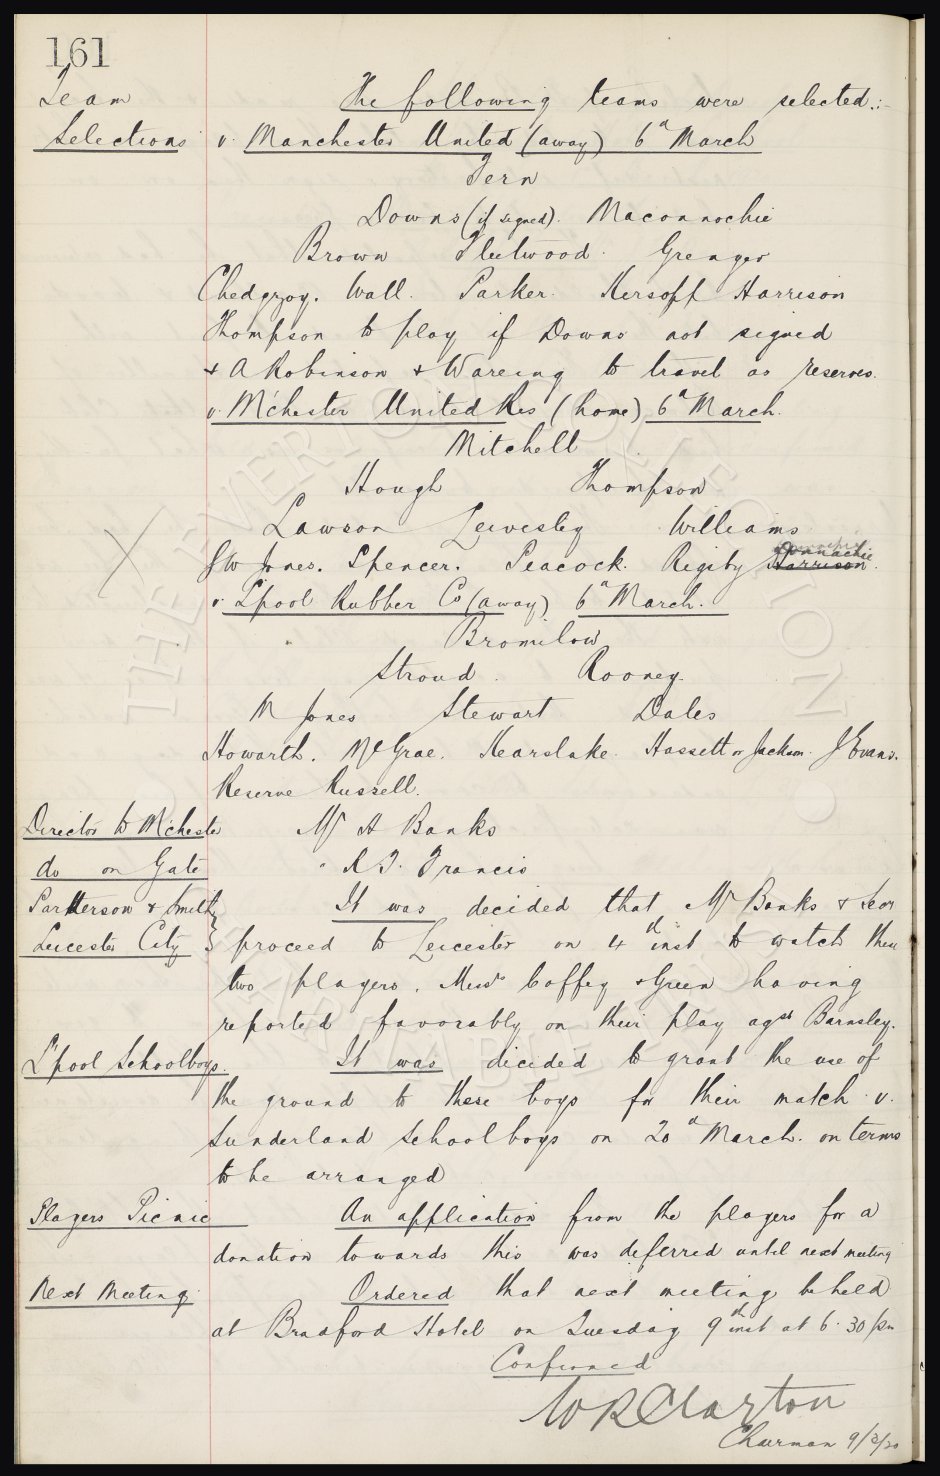 161
Team
Selections
The following teams were selected :-
v. Manchester United (away) 6th March
Fern
Downs (if signed). Maconnachie
Brown Fleetwood. Grenyer
Chedgzoy. Wall. Parker. Kirsopp Harrison
Thompson to play if Downs not signed
+ A Robinson + Wareing to travel as reserves.
v. M'chester United Res (home) 6th March.
Mitchell
Hough Thompson
Lawson Leivesley Williams
J W Jones. Spencer. Peacock. Rigsby Donnachie
Harrison.
v. L'pool Rubber Co (away) 6th March.
Bromilow
Stroud. Rooney.
R Jones Stewart Dales
Howarth. McGrae. Kearslake. Hassett or Jackson. J Evans.
Reserve Russell.
Director to M'chester Mr A Banks
do on Gate " R T. Francis
Patterson & Smith
Leicester City
It was decided that Mr Banks & Secy
proceed to Leicester on 4th inst to watch these
two players, Messrs Coffey & Green having
reported favorably on their play agst Barnsley.
L'pool Schoolboys. It was decided to grant the use of
the ground to these boys for their match v.
Sunderland Schoolboys on 20th March. on terms
to be arranged
Players Picnic An application from the players for a
donation towards this was deferred until next meeting
Next Meeting. Ordered that next meeting be held
at Bradford Hotel on Tuesday 9th inst at 6.30 pm
Confirmed
W R Clayton
Chairman 9/3/20
THE EVERTON COLLECTION
CHARITABLE TRUST